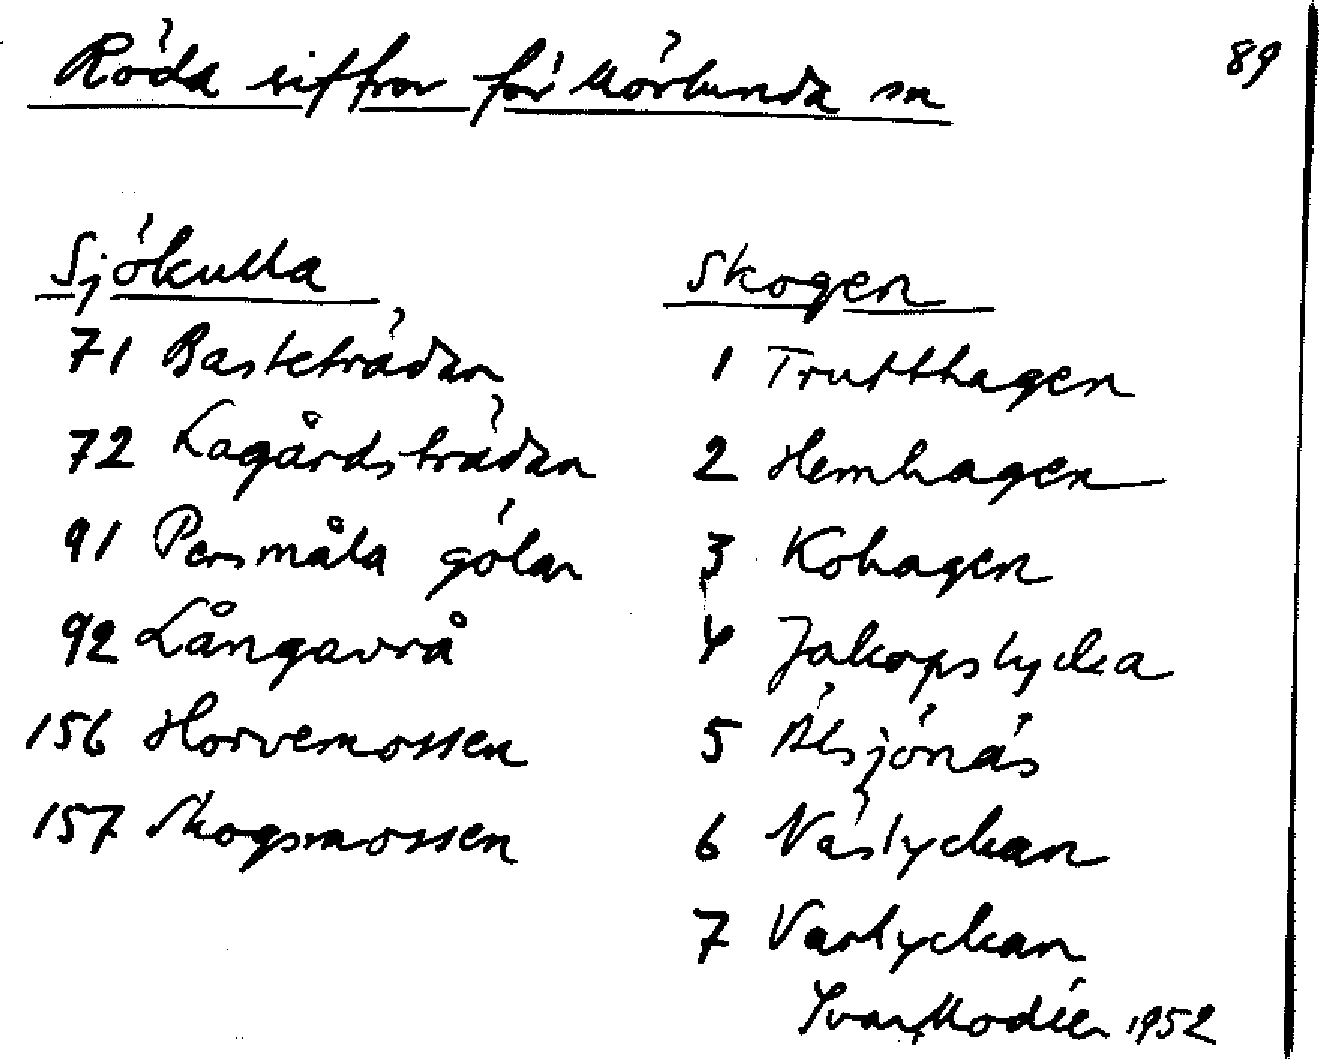 Röda siffror för Mörlunda sn
89
Sjökulla
71 Basteträdan
72 Lagårdsträdan
91 Persmåla gölar
92 Långavrå
156 Horvemossen
157 Skogsmossen
Skogen
1 Trutthagen
2 Hemhagen
3 Kohagen
4 Jakopslycka
5 Älsjönäs
6 Näslyckan
7 Varlyckan
Ivar Modéer 1952